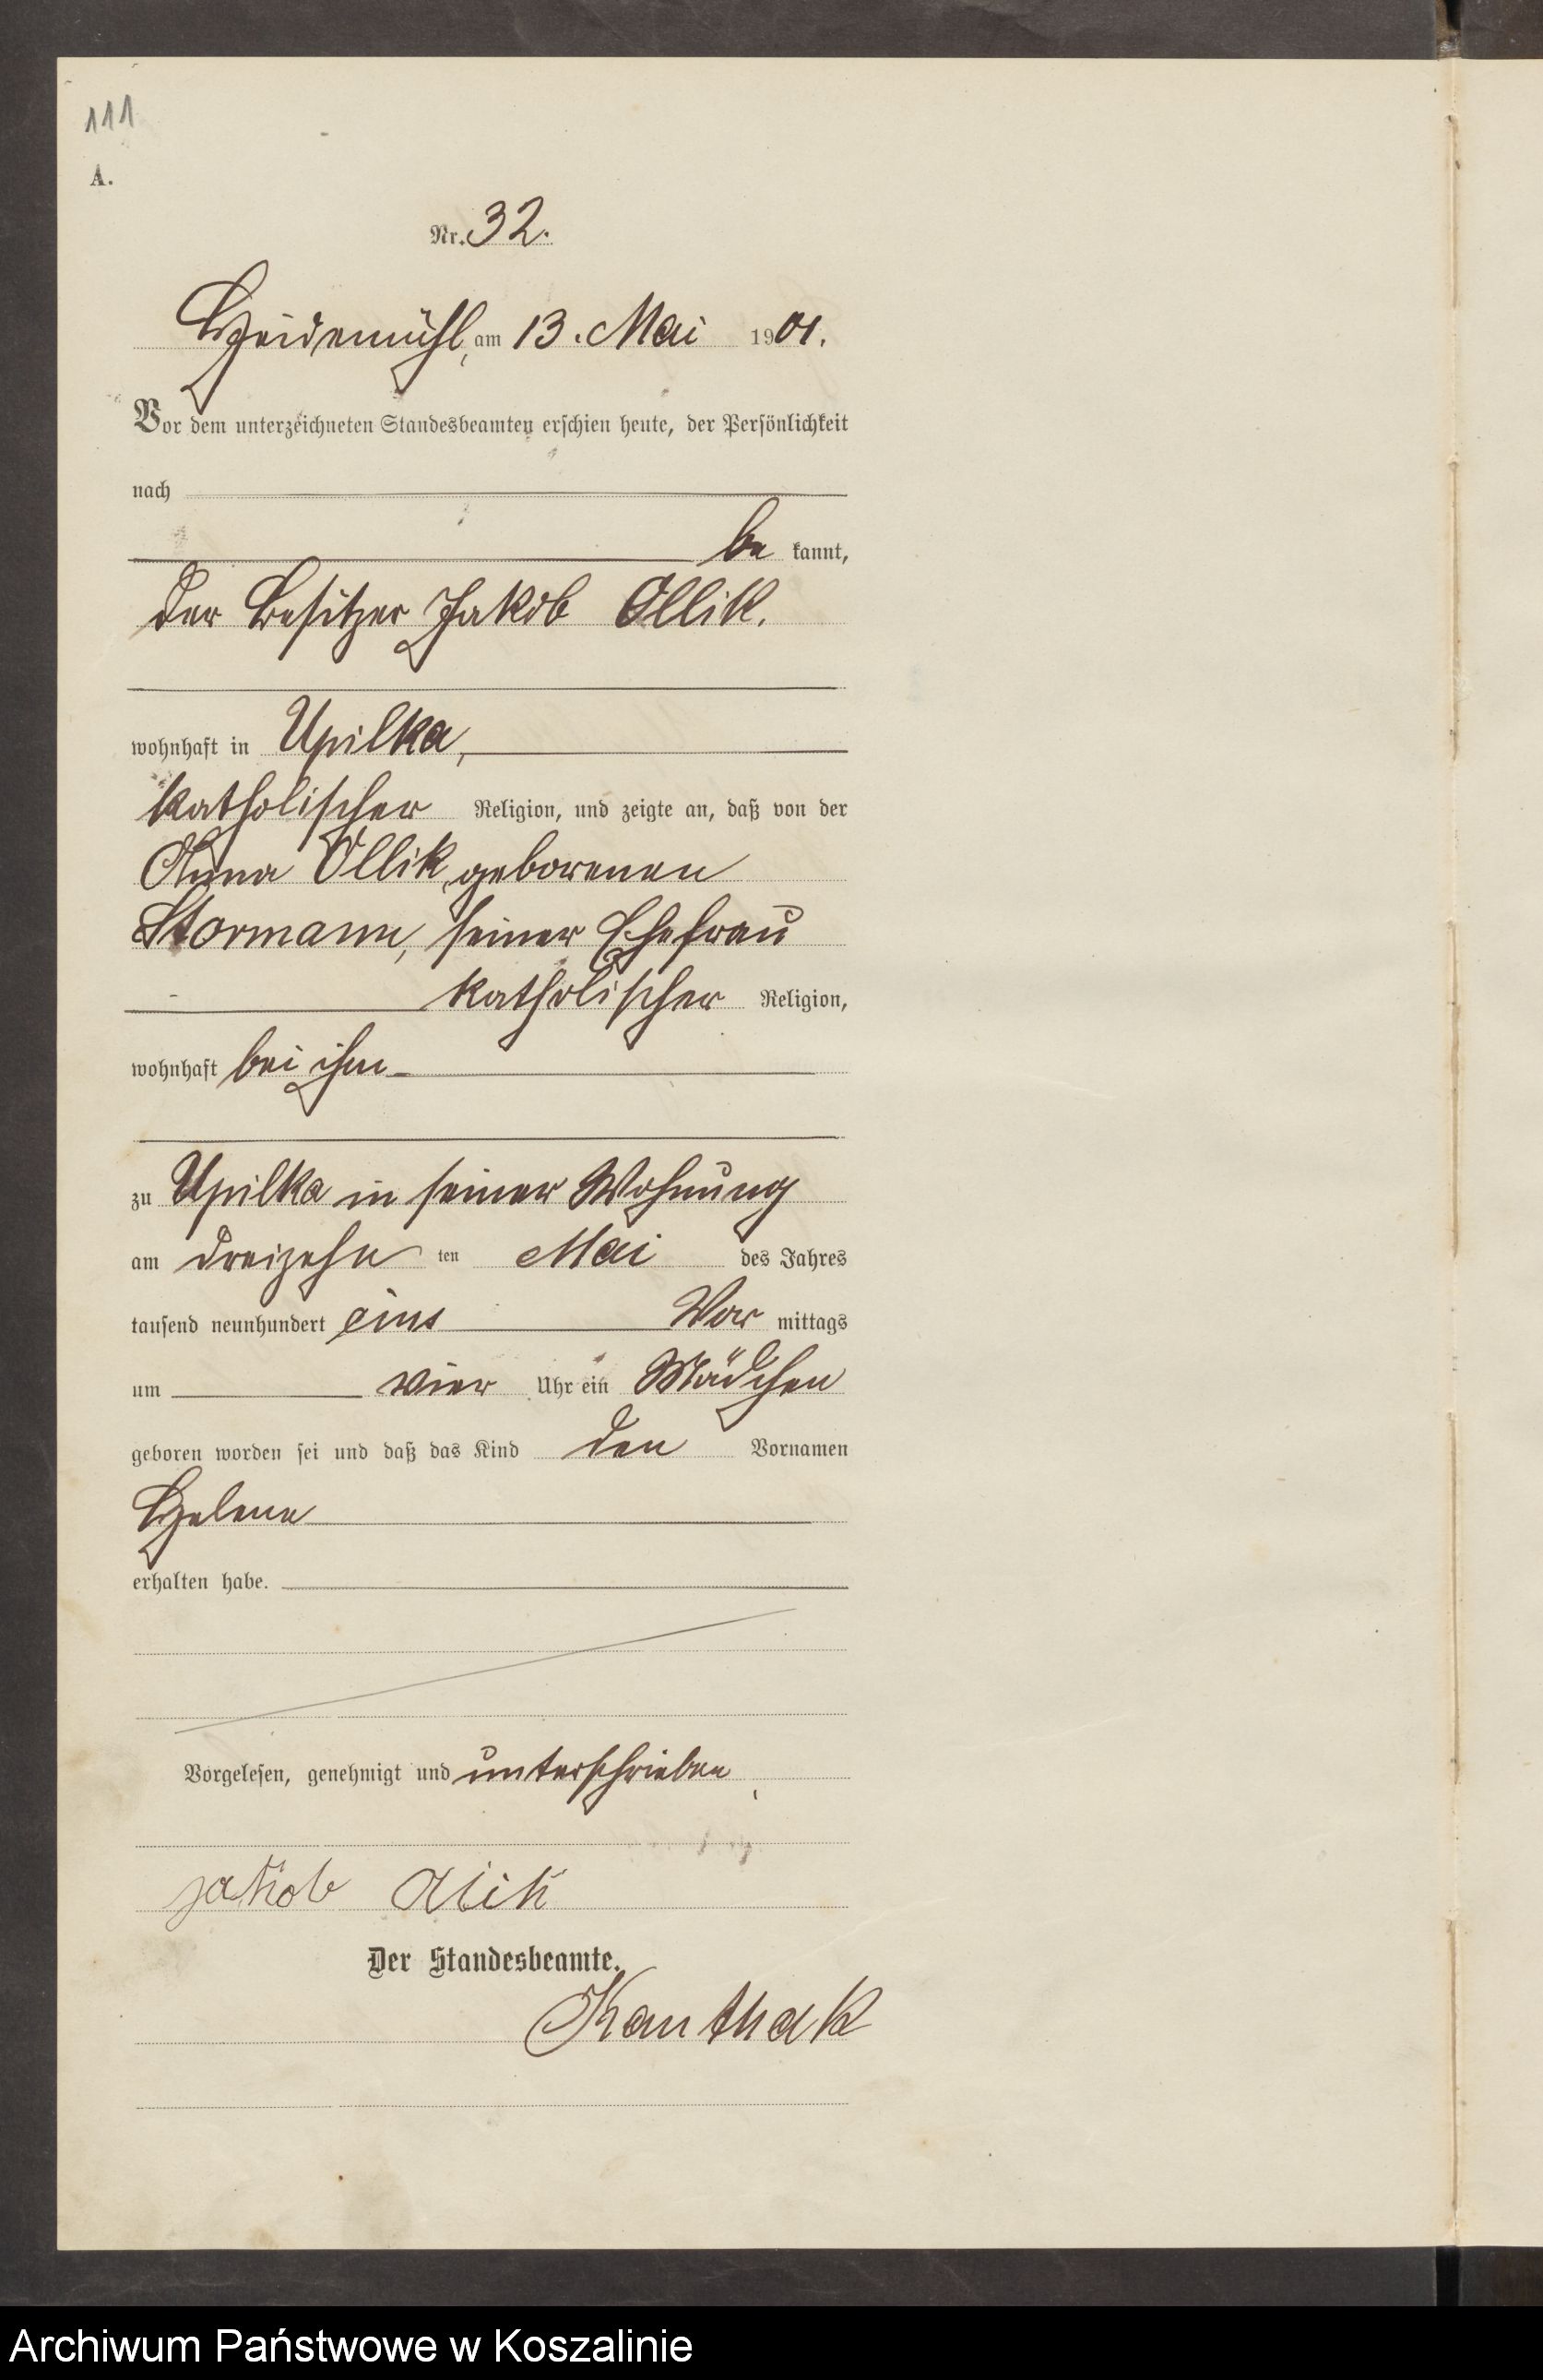 111
A.
Nr. 32.
Heidemühl, am 13. Mai 1901.
Vor dem unterzeichneten Standesbeamten erschien heute, der Persönlichkeit
nach
be kannt,
der Besitzer Jakob Ollik.
wohnhaft in Upilka,
katholischer Religion, und zeigte an, daß von der
Anna Ollik, geborenen
Stormann, seiner Ehefrau
katholischer Religion,
wohnhaft bei ihm
zu Upilka in seiner Wohnung
am dreizehn ten Mai des Jahres
tausend neunhundert eins Vor mittags
um vier Uhr ein Mädchen
geboren worden sei und daß das Kind den Vornamen
Helene
erhalten habe.
Vorgelesen, genehmigt und unterschrieben
Jakob Olik
Der Standesbeamte.
Kanthak
Archiwum Państwowe w Koszalinie